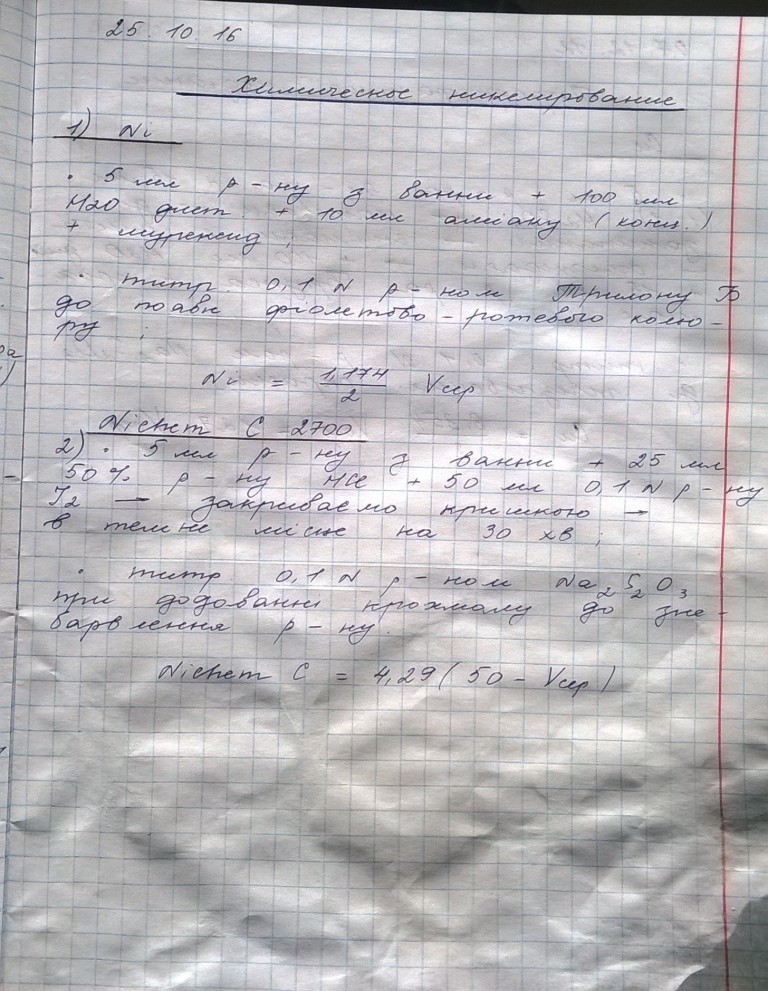 25.10.16
Химическое никелирование
1) Ni
· 5 мл р-ну з ванни + 100 мл
H2O дист. + 10 мл аміаку (конц.)
+ мурексид ;
· титр. 0,1 N р-ном Трилону Б
до появи фіолетово-рожевого кольо-
ру ;
Ni = 1,174/2 Vср
Nichem C 2700
2) · 5 мл р-ну з ванни + 25 мл
50% р-ну HCl + 50 мл 0,1 N р-ну
J2 → закриваємо кришкою →
в темне місце на 30 хв ;
· титр. 0,1 N р-ном Na2S2O3
при додованні крохмалу до зне-
барвлення р-ну.
Nichem C = 4,29 (50 - Vср)